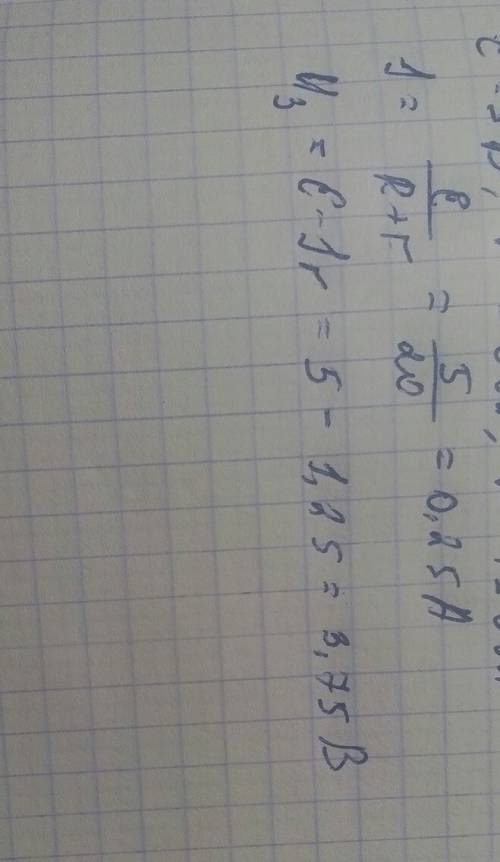 I = ε/(R+r) = 5/20 = 0,25 А
U₃ = ε - Ir = 5 - 1,25 = 3,75 В